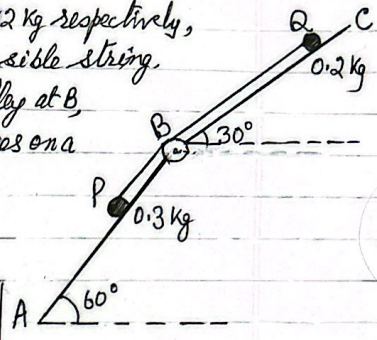 2 kg respectively,
sible string.
ley at B,
es on a
Q
C
0.2 kg
B
30°
P
0.3 kg
A
60°